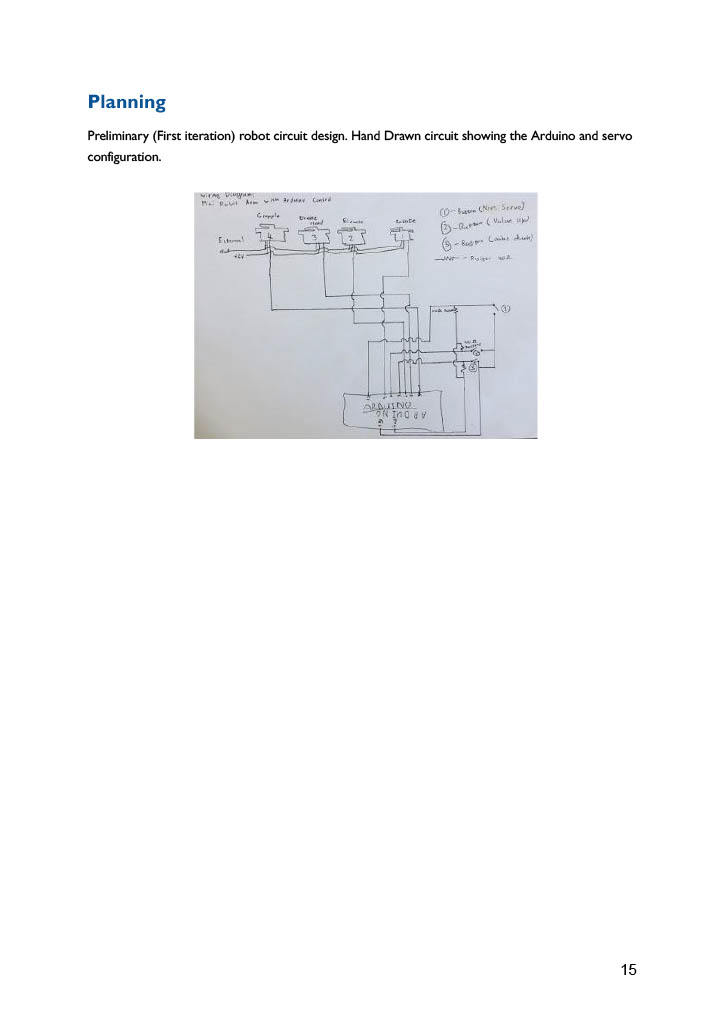 Planning
Preliminary (First iteration) robot circuit design. Hand Drawn circuit showing the Arduino and servo
configuration.
Wiring Diagram:
Mini Robot Arm with Arduino Control
Grapple
Rotate
External
4
3
2
1
① - Button (Next Servo)
② - Button (Value Up)
③ - Button (
- Resistor
①
③
ARDUINO
ARDUINO
15